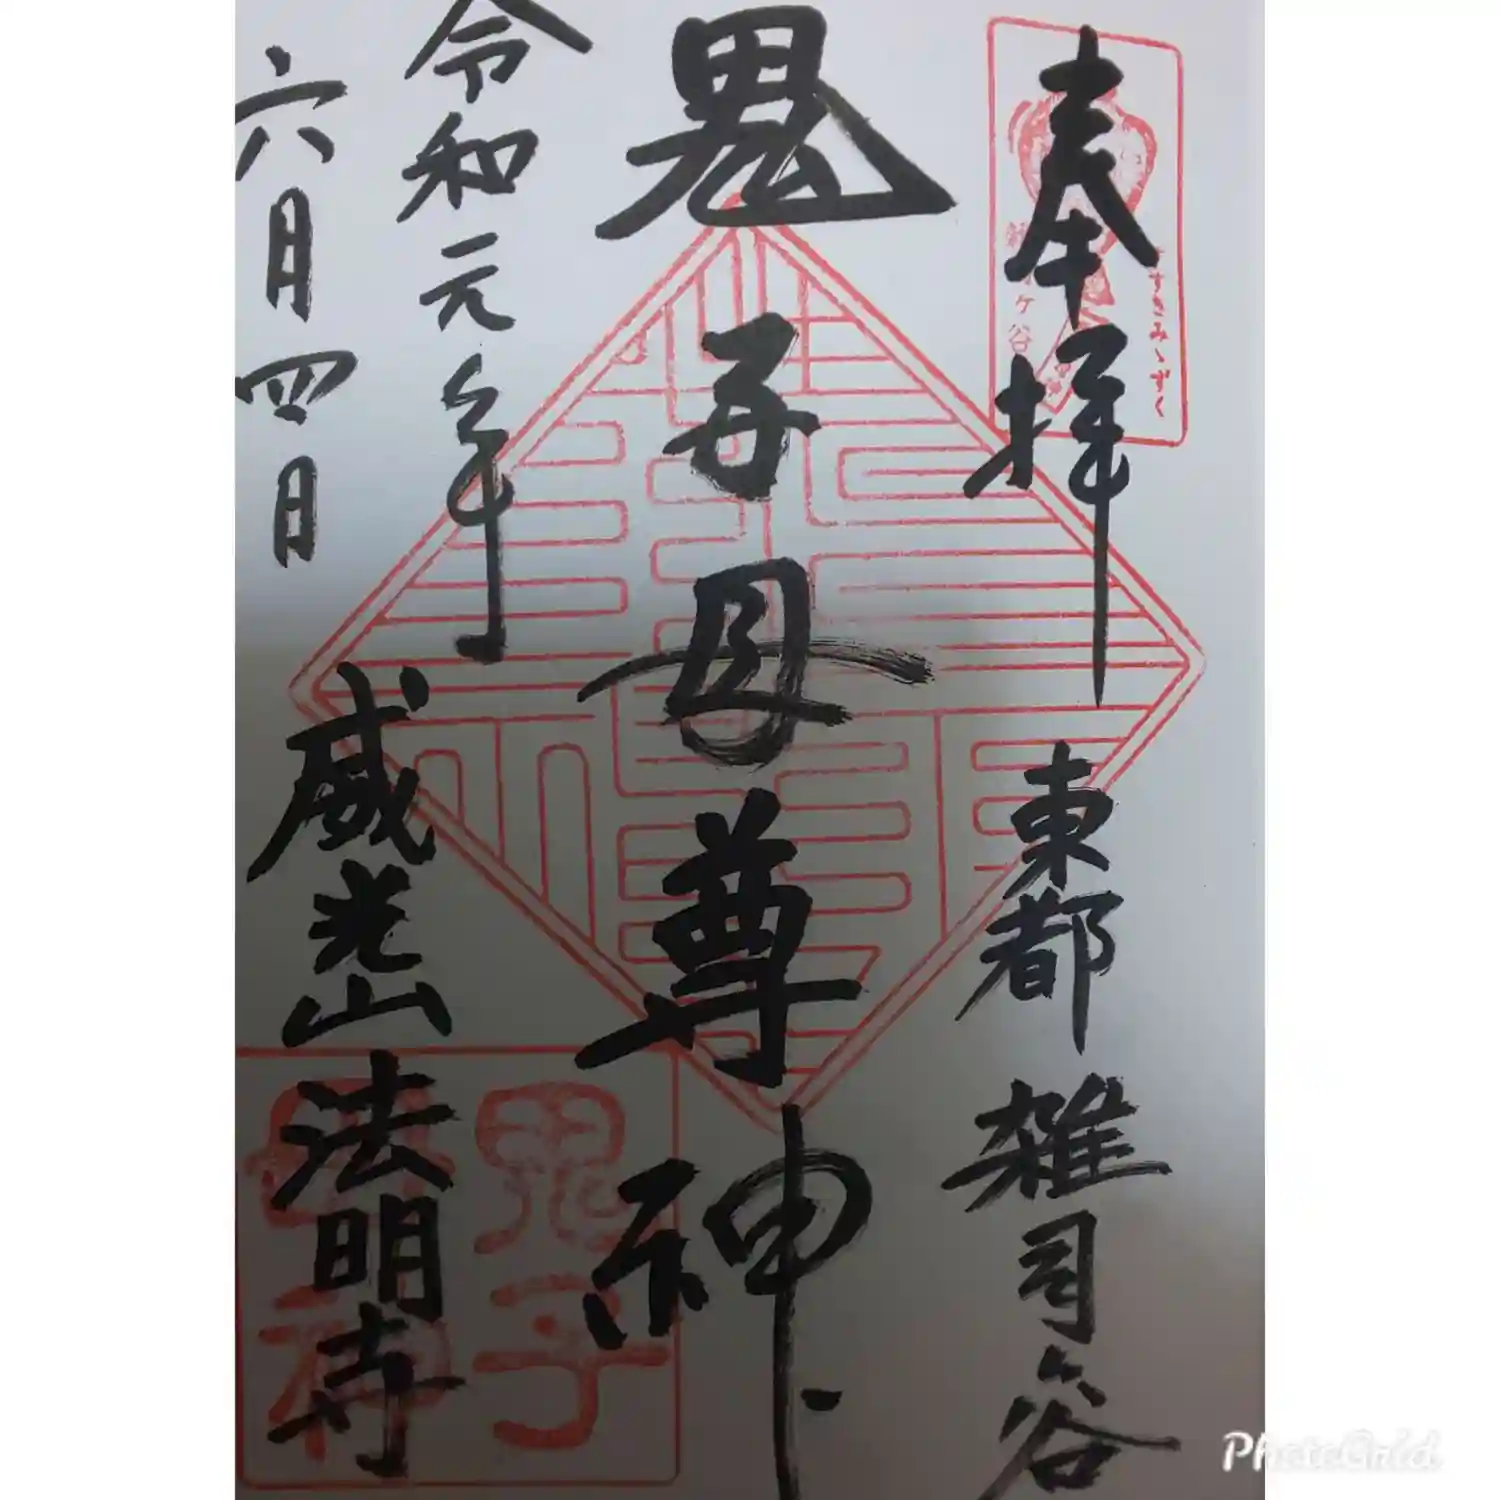 奉拝
東都 雑司谷
すすきみゝずく
鬼子母尊神
令和元年
六月四日
威光山法明寺
鬼子
母神
PhotoGrid